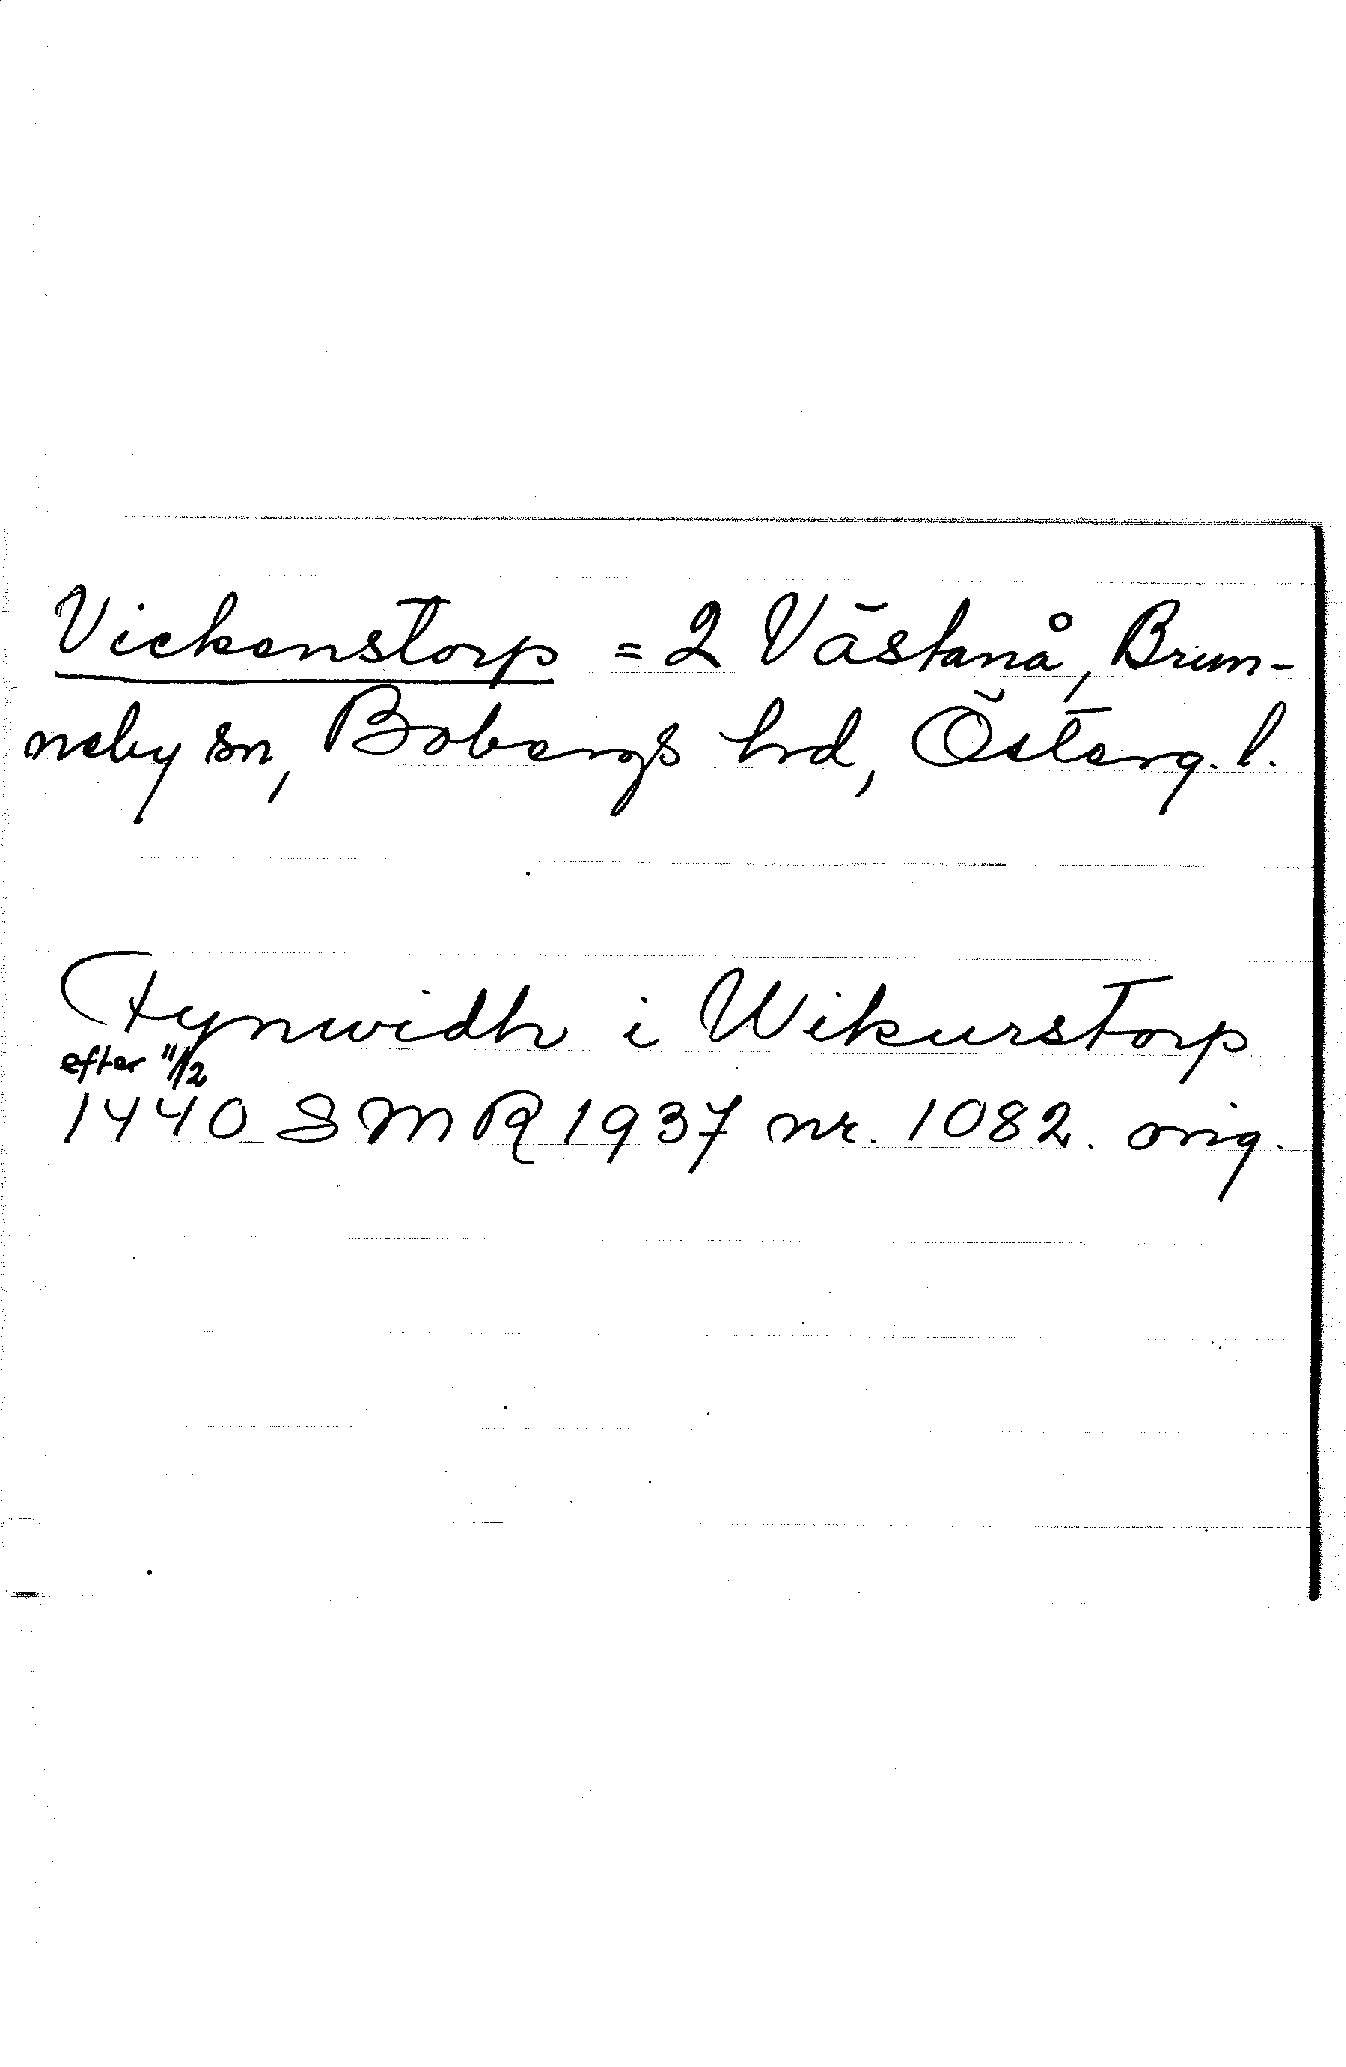 Vickenstorp = 2 Västanå, Brun-
neby sn, Bobergs hrd, Österg. l.
Tynwidh i Wikurstorp
efter 11/2
1440 SMR 1937 nr. 1082. orig.